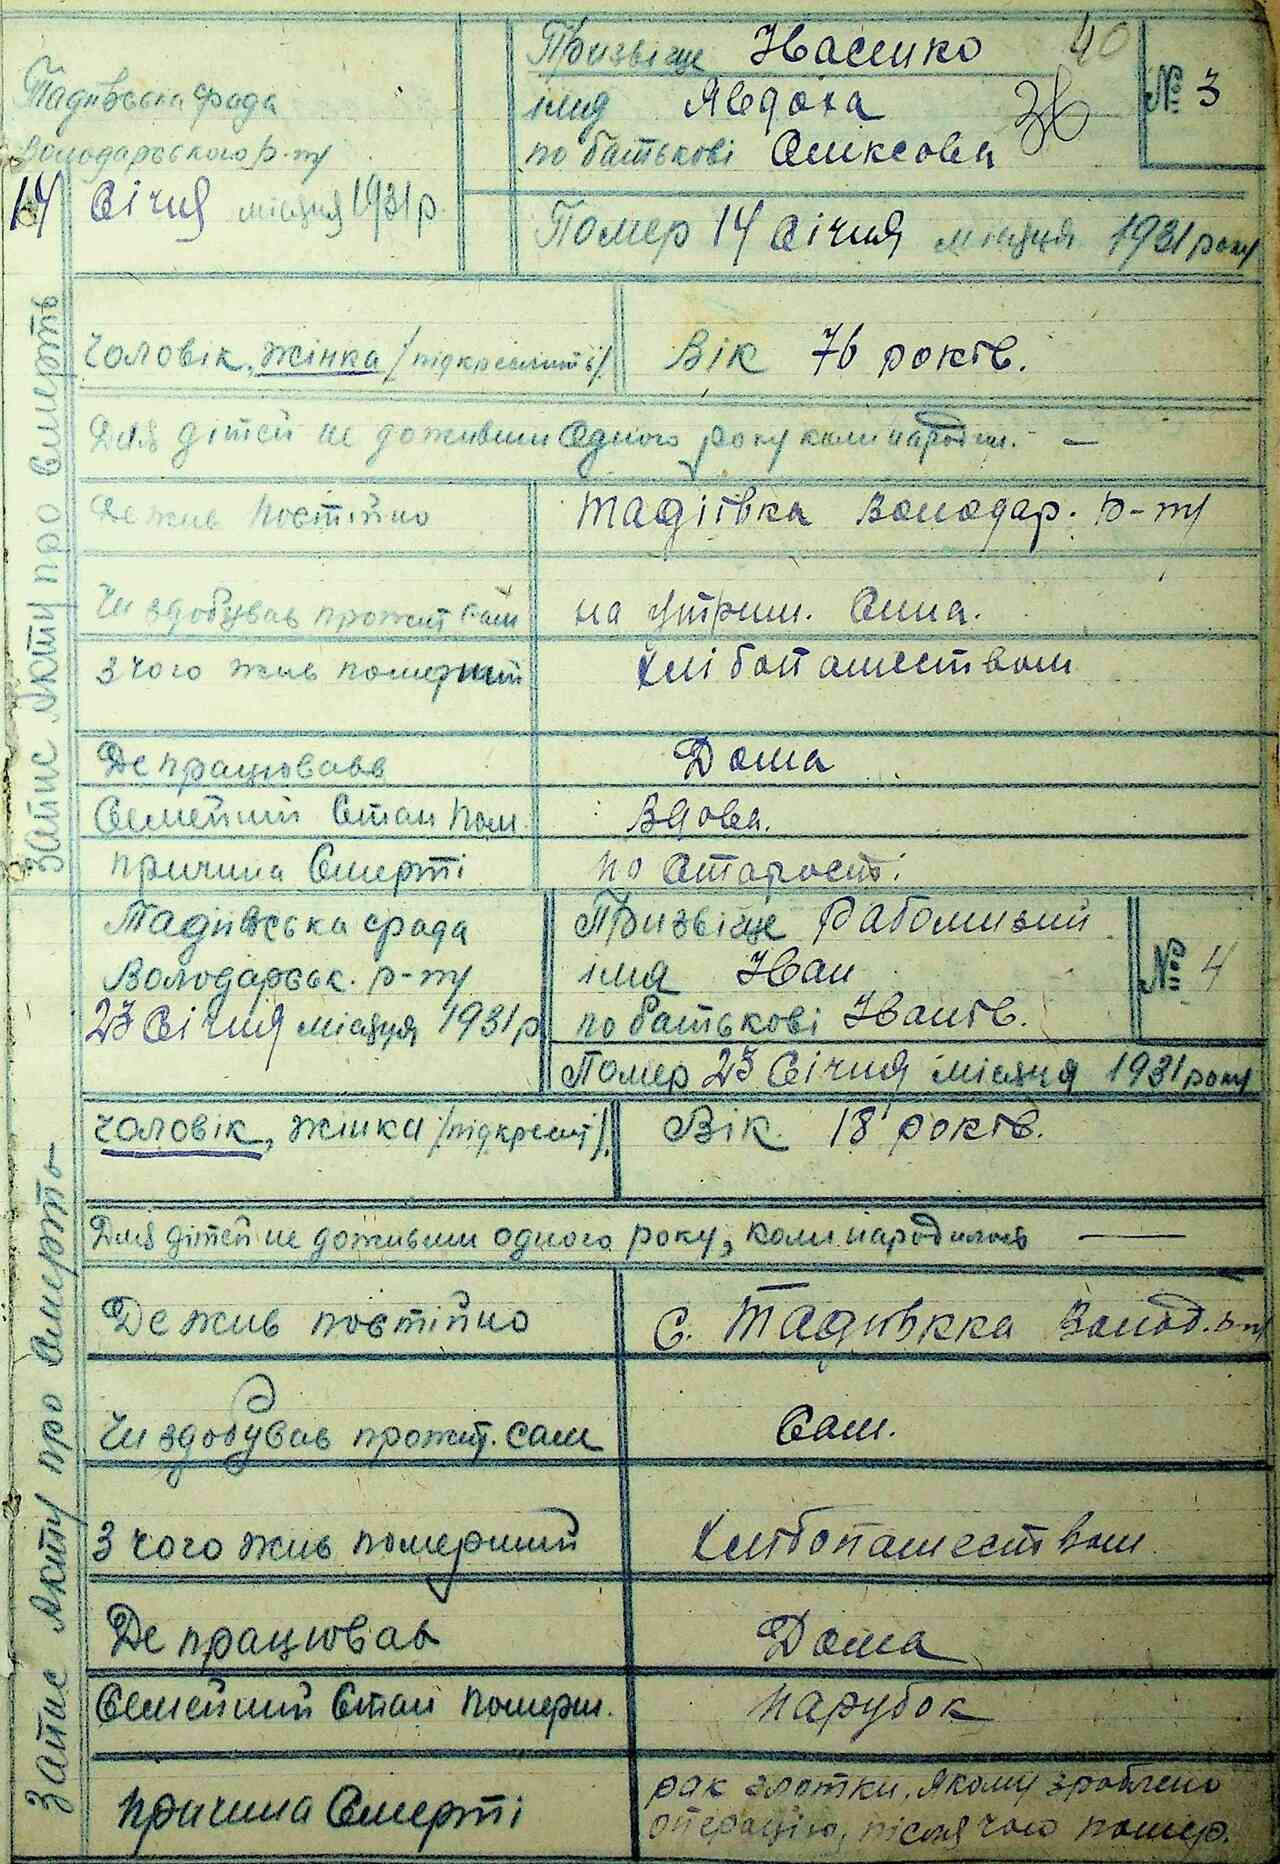 Тадіївська срада
Володарського р-ну
14 Січня місяця 1931 р.
Призвіще Івасенко
імя Явдоха
по батькові Олексова
40
Ж
№ 3
Помер 14 Січня місяця 1931 року
Запис Акту про Смерть
Чоловік, жінка /підкреслить/
Вік 76 років.
Для дітей не доживши одного року коли народил. —
Де жив постійно
Тадіївка Володар. р-ну
Чи здобував прожит. сам
на утрим. Сина.
З чого жив померший
Хлібопашеством
Де працювавв
Дома
Семейний Стан пом.
Вдова.
причина Смерті
по Старості.
Тадіївська срада
Володарськ. р-ну
23 Січня місяця 1931 р
Призвіще Работизний
імя Іван
по батькові Іванів.
№ 4
Помер 23 Січня місяця 1931 року
Запис Акту про Смерть
Чоловік, жінка /підкресл/.
Вік 18 років.
Для дітей не доживши одного року, коли народилось —
Де жив постійно
с. Тадіївкка Волод. р-н
Чи здобував прожит. сам
Сам.
З чого жив померший
Хлібопашеством
Де працював
Дома
Семейний Стан померш.
Парубок
причина Смерті
рак глотки, якому зроблено
операцію, після чого помер.